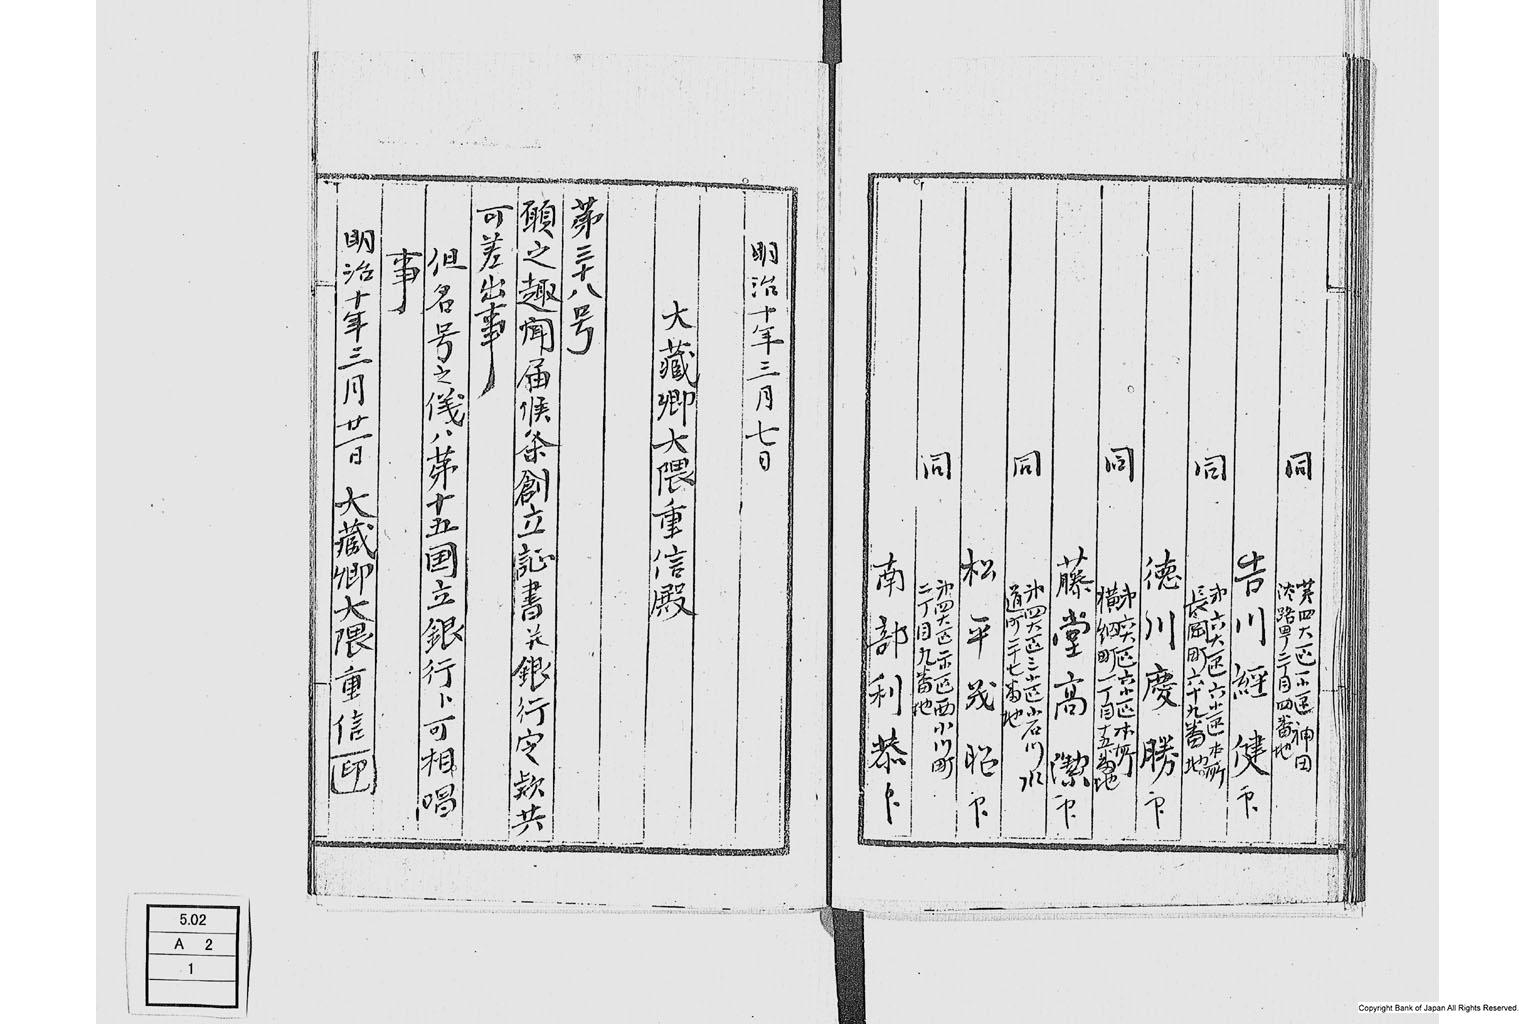 同
第四大区小区神田
淡路町二丁目四番地
吉川經健 印
同
第六大区六小区本所
長岡町六十九番地
徳川慶勝 印
同
第六大区六小区本所
横網町一丁目十五番地
藤堂高潔 印
同
第四大区三小区小石川水
道町二十七番地
松平茂昭 印
同
第四大区一小区西小川町
二丁目九番地
南部利恭 印
明治十年三月七日
大藏卿大隈重信殿
第三十八号
願之趣聞届候条創立証書並銀行定款共
可差出事
但名号之儀ハ第十五国立銀行ト可相唱
事
明治十年三月廿一日 大藏卿大隈重信 印
5.02
A 2
1
Copyright Bank of Japan All Rights Reserved.